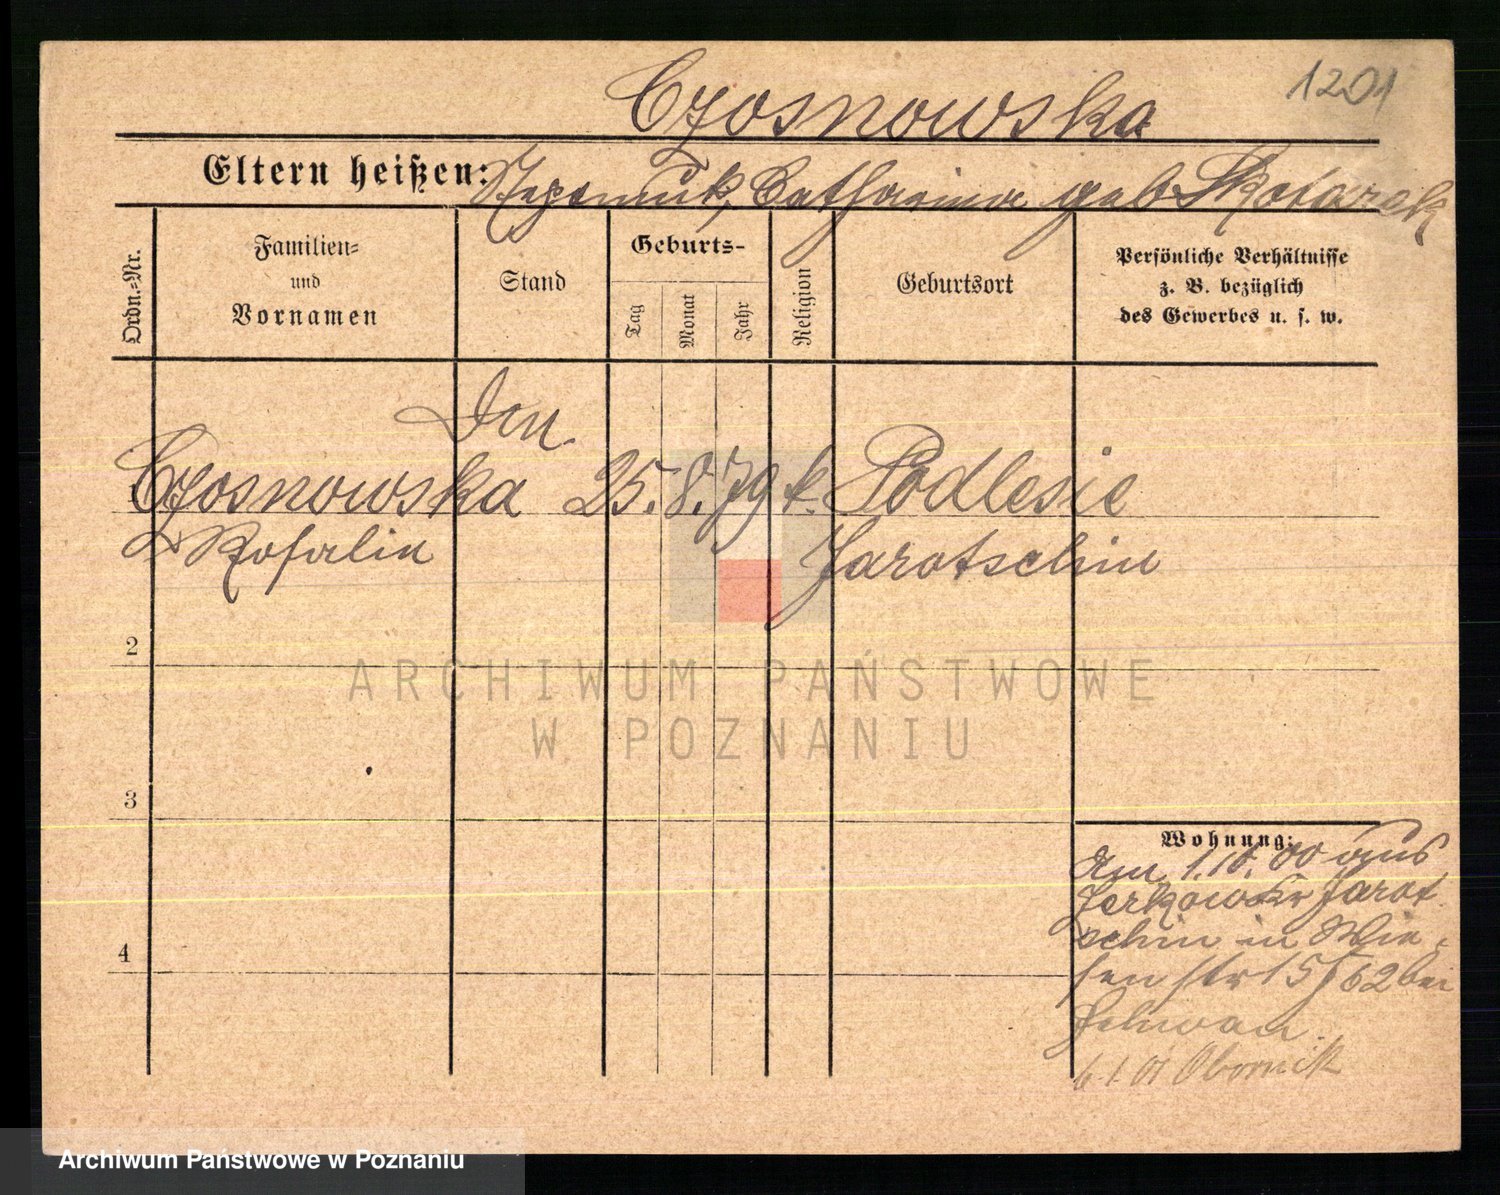 1201
Czosnowska
Eltern heißen: Nepomuk, Catharina geb Skotarek
Ordn.-Nr.
Familien-
und
Vornamen
Stand
Geburts-
Tag
Monat
Jahr
Religion
Geburtsort
Persönliche Verhältnisse
z. B. bezüglich
des Gewerbes u. s. w.
1 Czosnowska 25. 8. 79 k. Podlesie
Rosalie Jarotschin
2
3
4
Wohnung:
Am 1.10.00 aus
Jarot
schin in Wie-
sen str 15 I 62 bei
6.1.01 Obornik
ARCHIWUM PAŃSTWOWE
W POZNANIU
Archiwum Państwowe w Poznaniu